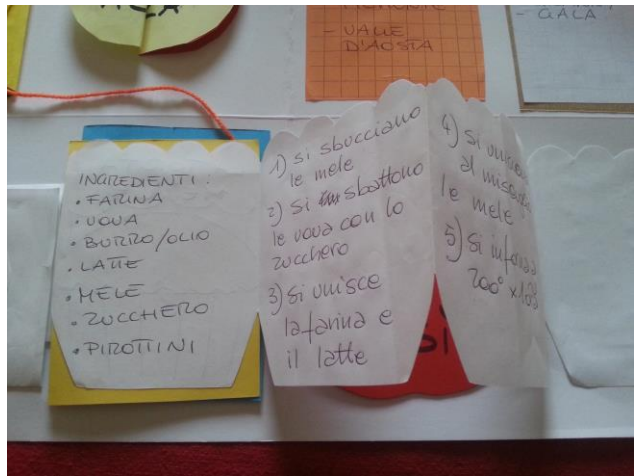 MELA
- VALLE
D'AOSTA
- GALA
INGREDIENTI:
• FARINA
• UOVA
• BURRO/OLIO
• LATTE
• MELE
• ZUCCHERO
• PIROTTINI
1) Si sbucciano
le mele
2) Si sbattono
le uova con lo
zucchero
3) Si unisce
la farina e
il latte
4) Si uniscono
al
le mele
5) Si inforna
200° x